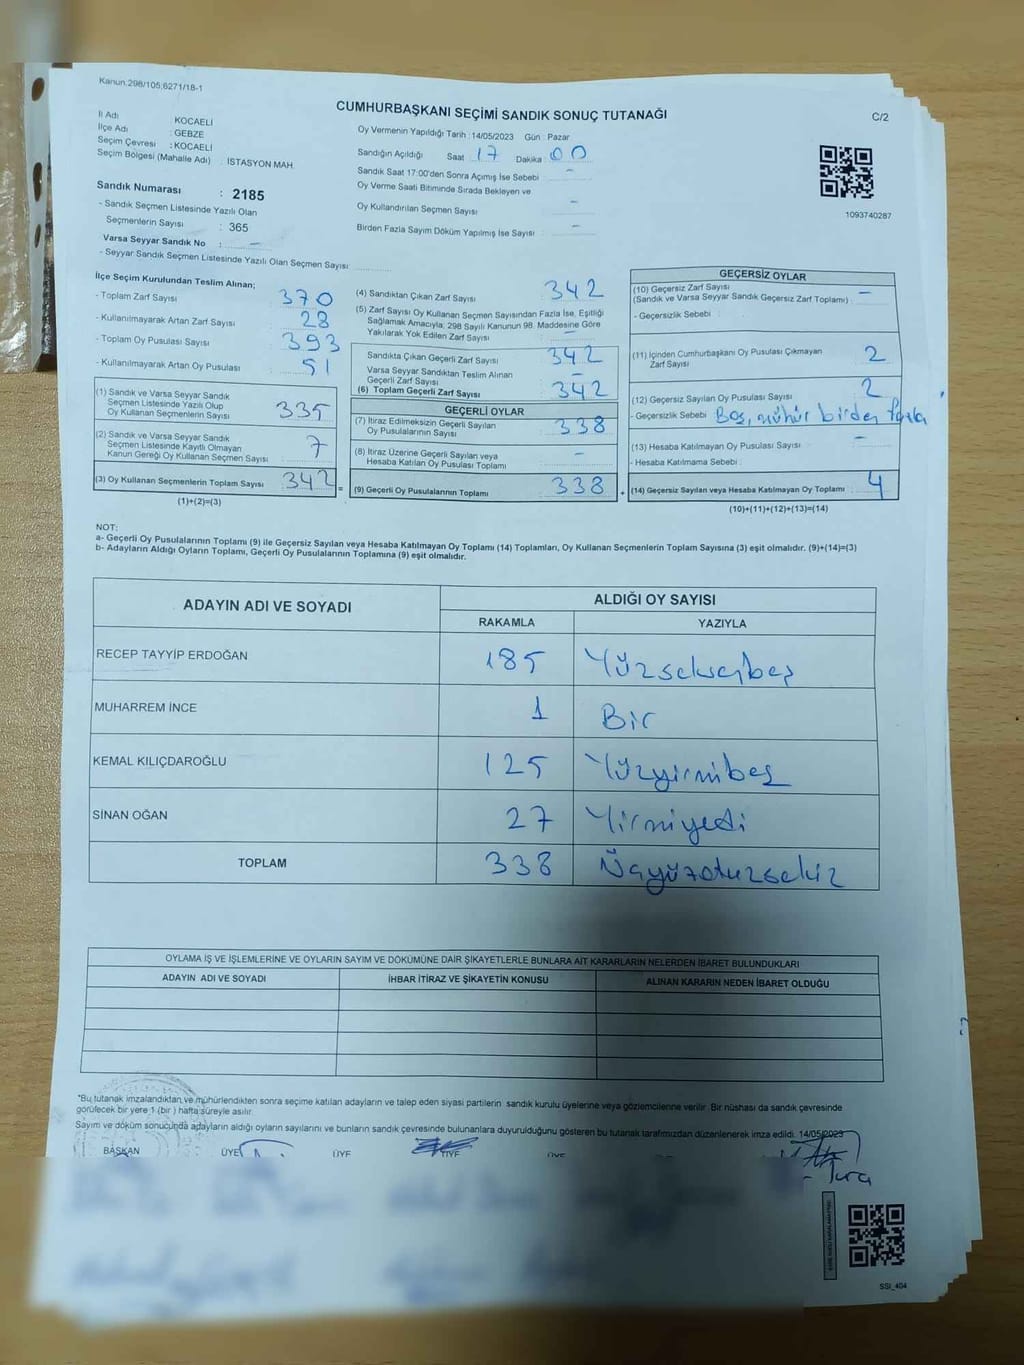 Kanun.298/105;6271/18-1
CUMHURBAŞKANI SEÇİMİ SANDIK SONUÇ TUTANAĞI
C/2
İl Adı : KOCAELİ
İlçe Adı : GEBZE
Seçim Çevresi : KOCAELİ
Seçim Bölgesi (Mahalle Adı) : İSTASYON MAH.
Sandık Numarası : 2185
- Sandık Seçmen Listesinde Yazılı Olan
Seçmenlerin Sayısı : 365
Varsa Seyyar Sandık No : -
- Seyyar Sandık Seçmen Listesinde Yazılı Olan Seçmen Sayısı:
Oy Vermenin Yapıldığı Tarih : 14/05/2023 Gün : Pazar
Sandığın Açıldığı Saat 17 Dakika : 00
Sandık Saat 17:00'den Sonra Açımış İse Sebebi : -
Oy Verme Saati Bitiminde Sırada Bekleyen ve
Oy Kullandırılan Seçmen Sayısı : -
Birden Fazla Sayım Döküm Yapılmış İse Sayısı : -
1093740287
İlçe Seçim Kurulundan Teslim Alınan;
- Toplam Zarf Sayısı : 370
- Kullanılmayarak Artan Zarf Sayısı : 28
- Toplam Oy Pusulası Sayısı : 393
- Kullanılmayarak Artan Oy Pusulası : 51
(1) Sandık ve Varsa Seyyar Sandık
Seçmen Listesinde Yazılı Olup
Oy Kullanan Seçmenlerin Sayısı : 335
(2) Sandık ve Varsa Seyyar Sandık
Seçmen Listesinde Kayıtlı Olmayan
Kanun Gereği Oy Kullanan Seçmen Sayısı : 7
(3) Oy Kullanan Seçmenlerin Toplam Sayısı : 342 =
(1)+(2)=(3)
(4) Sandıktan Çıkan Zarf Sayısı : 342
(5) Zarf Sayısı Oy Kullanan Seçmen Sayısından Fazla İse, Eşitliği
Sağlamak Amacıyla, 298 Sayılı Kanunun 98. Maddesine Göre
Yakılarak Yok Edilen Zarf Sayısı : -
Sandıkta Çıkan Geçerli Zarf Sayısı : 342
Varsa Seyyar Sandıktan Teslim Alınan
Geçerli Zarf Sayısı : -
(6) Toplam Geçerli Zarf Sayısı : 342
GEÇERLİ OYLAR
(7) İtiraz Edilmeksizin Geçerli Sayılan
Oy Pusulalarının Sayısı : 338
(8) İtiraz Üzerine Geçerli Sayılan veya
Hesaba Katılan Oy Pusulası Toplamı : -
(9) Geçerli Oy Pusulalarının Toplamı : 338 +
GEÇERSİZ OYLAR
(10) Geçersiz Zarf Sayısı
(Sandık ve Varsa Seyyar Sandık Geçersiz Zarf Toplamı) : -
- Geçersizlik Sebebi :
(11) İçinden Cumhurbaşkanı Oy Pusulası Çıkmayan
Zarf Sayısı : 2
(12) Geçersiz Sayılan Oy Pusulası Sayısı : 2
- Geçersizlik Sebebi : Boş, mühür birden fazla
(13) Hesaba Katılmayan Oy Pusulası Sayısı : -
- Hesaba Katılmama Sebebi :
(14) Geçersiz Sayılan veya Hesaba Katılmayan Oy Toplamı : 4
(10)+(11)+(12)+(13)=(14)
NOT:
a- Geçerli Oy Pusulalarının Toplamı (9) ile Geçersiz Sayılan veya Hesaba Katılmayan Oy Toplamı (14) Toplamları, Oy Kullanan Seçmenlerin Toplam Sayısına (3) eşit olmalıdır. (9)+(14)=(3)
b- Adayların Aldığı Oyların Toplamı, Geçerli Oy Pusulalarının Toplamına (9) eşit olmalıdır.
ADAYIN ADI VE SOYADI
ALDIĞI OY SAYISI
RAKAMLA YAZIYLA
RECEP TAYYİP ERDOĞAN 185 Yüzseksenbeş
MUHARREM İNCE 1 Bir
KEMAL KILIÇDAROĞLU 125 Yüzyirmibeş
SİNAN OĞAN 27 Yirmiyedi
TOPLAM 338 Üçyüzotuzsekiz
OYLAMA İŞ VE İŞLEMLERİNE VE OYLARIN SAYIM VE DÖKÜMÜNE DAİR ŞİKAYETLERLE BUNLARA AİT KARARLARIN NELERDEN İBARET BULUNDUKLARI
ADAYIN ADI VE SOYADI İHBAR İTİRAZ VE ŞİKAYETİN KONUSU ALINAN KARARIN NEDEN İBARET OLDUĞU
"Bu tutanak imzalandıktan ve mühürlendikten sonra seçime katılan adayların ve talep eden siyasi partilerin sandık kurulu üyelerine veya gözlemcilerine verilir. Bir nüshası da sandık çevresinde
görülecek bir yere 1 (bir ) hafta süreyle asılır.
Sayım ve döküm sonucunda adayların aldığı oyların sayılarını ve bunların sandık çevresinde bulunanlara duyurulduğunu gösteren bu tutanak tarafımızdan düzenlenerek imza edildi. 14/05/2023
BAŞKAN ÜYE ÜYE ÜYE ÜYE
SSİ_404